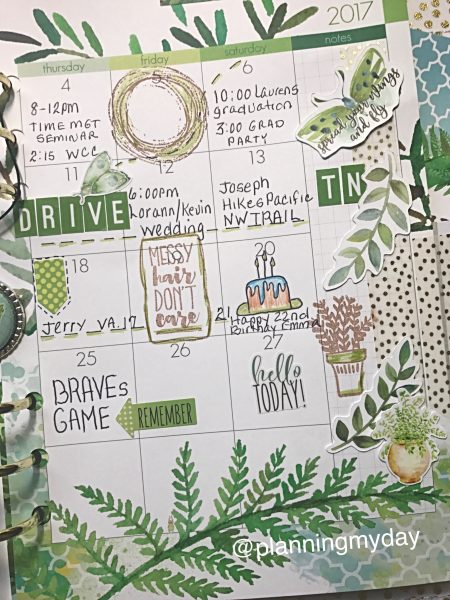 2017
thursday friday saturday notes
4 5 6
8-12pm
TIME MGT
SEMINAR
2:15 WCC
10:00 Laurens
graduation
3:00 GRAD
PARTY
spread your wings
and fly
11 12 13
DRIVE
6:00pm
Lorann/Kevin
Wedding
Joseph
Hikes Pacific
NW TRAIL
TN
18 20
Jerry VA. 17
MESSY
hair
DON'T
care
21 Happy 22nd
Birthday Emma
25 26 27
BRAVES
GAME
REMEMBER
hello
TODAY!
@planningmyday